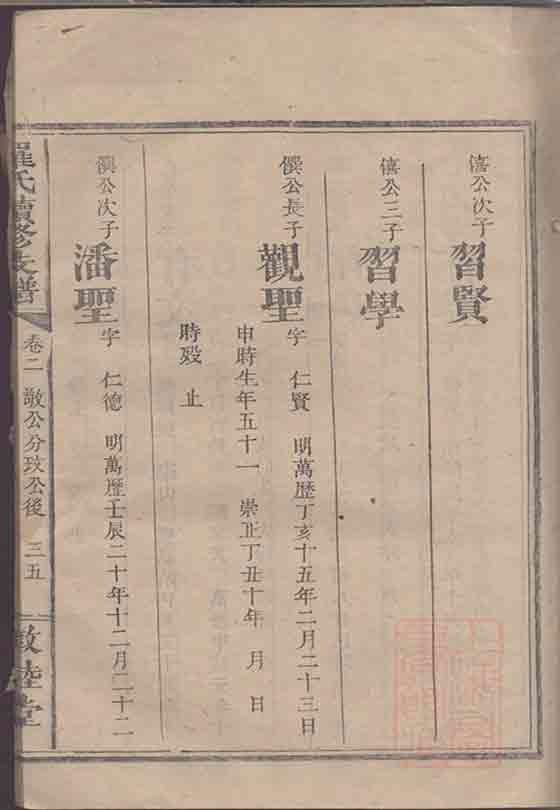 僖公次子 習賢
僖公三子 習學
僎公長子 觀聖 字 仁賢 明萬歷丁亥十五年二月二十三日
申時生年五十一 崇正丁丑十年 月 日
時殁 止
僎公次子 潘聖 字 仁德 明萬歷壬辰二十年十二月二十二
羅氏續修支譜 卷二 敬公分玟公後 三五 敦睦堂